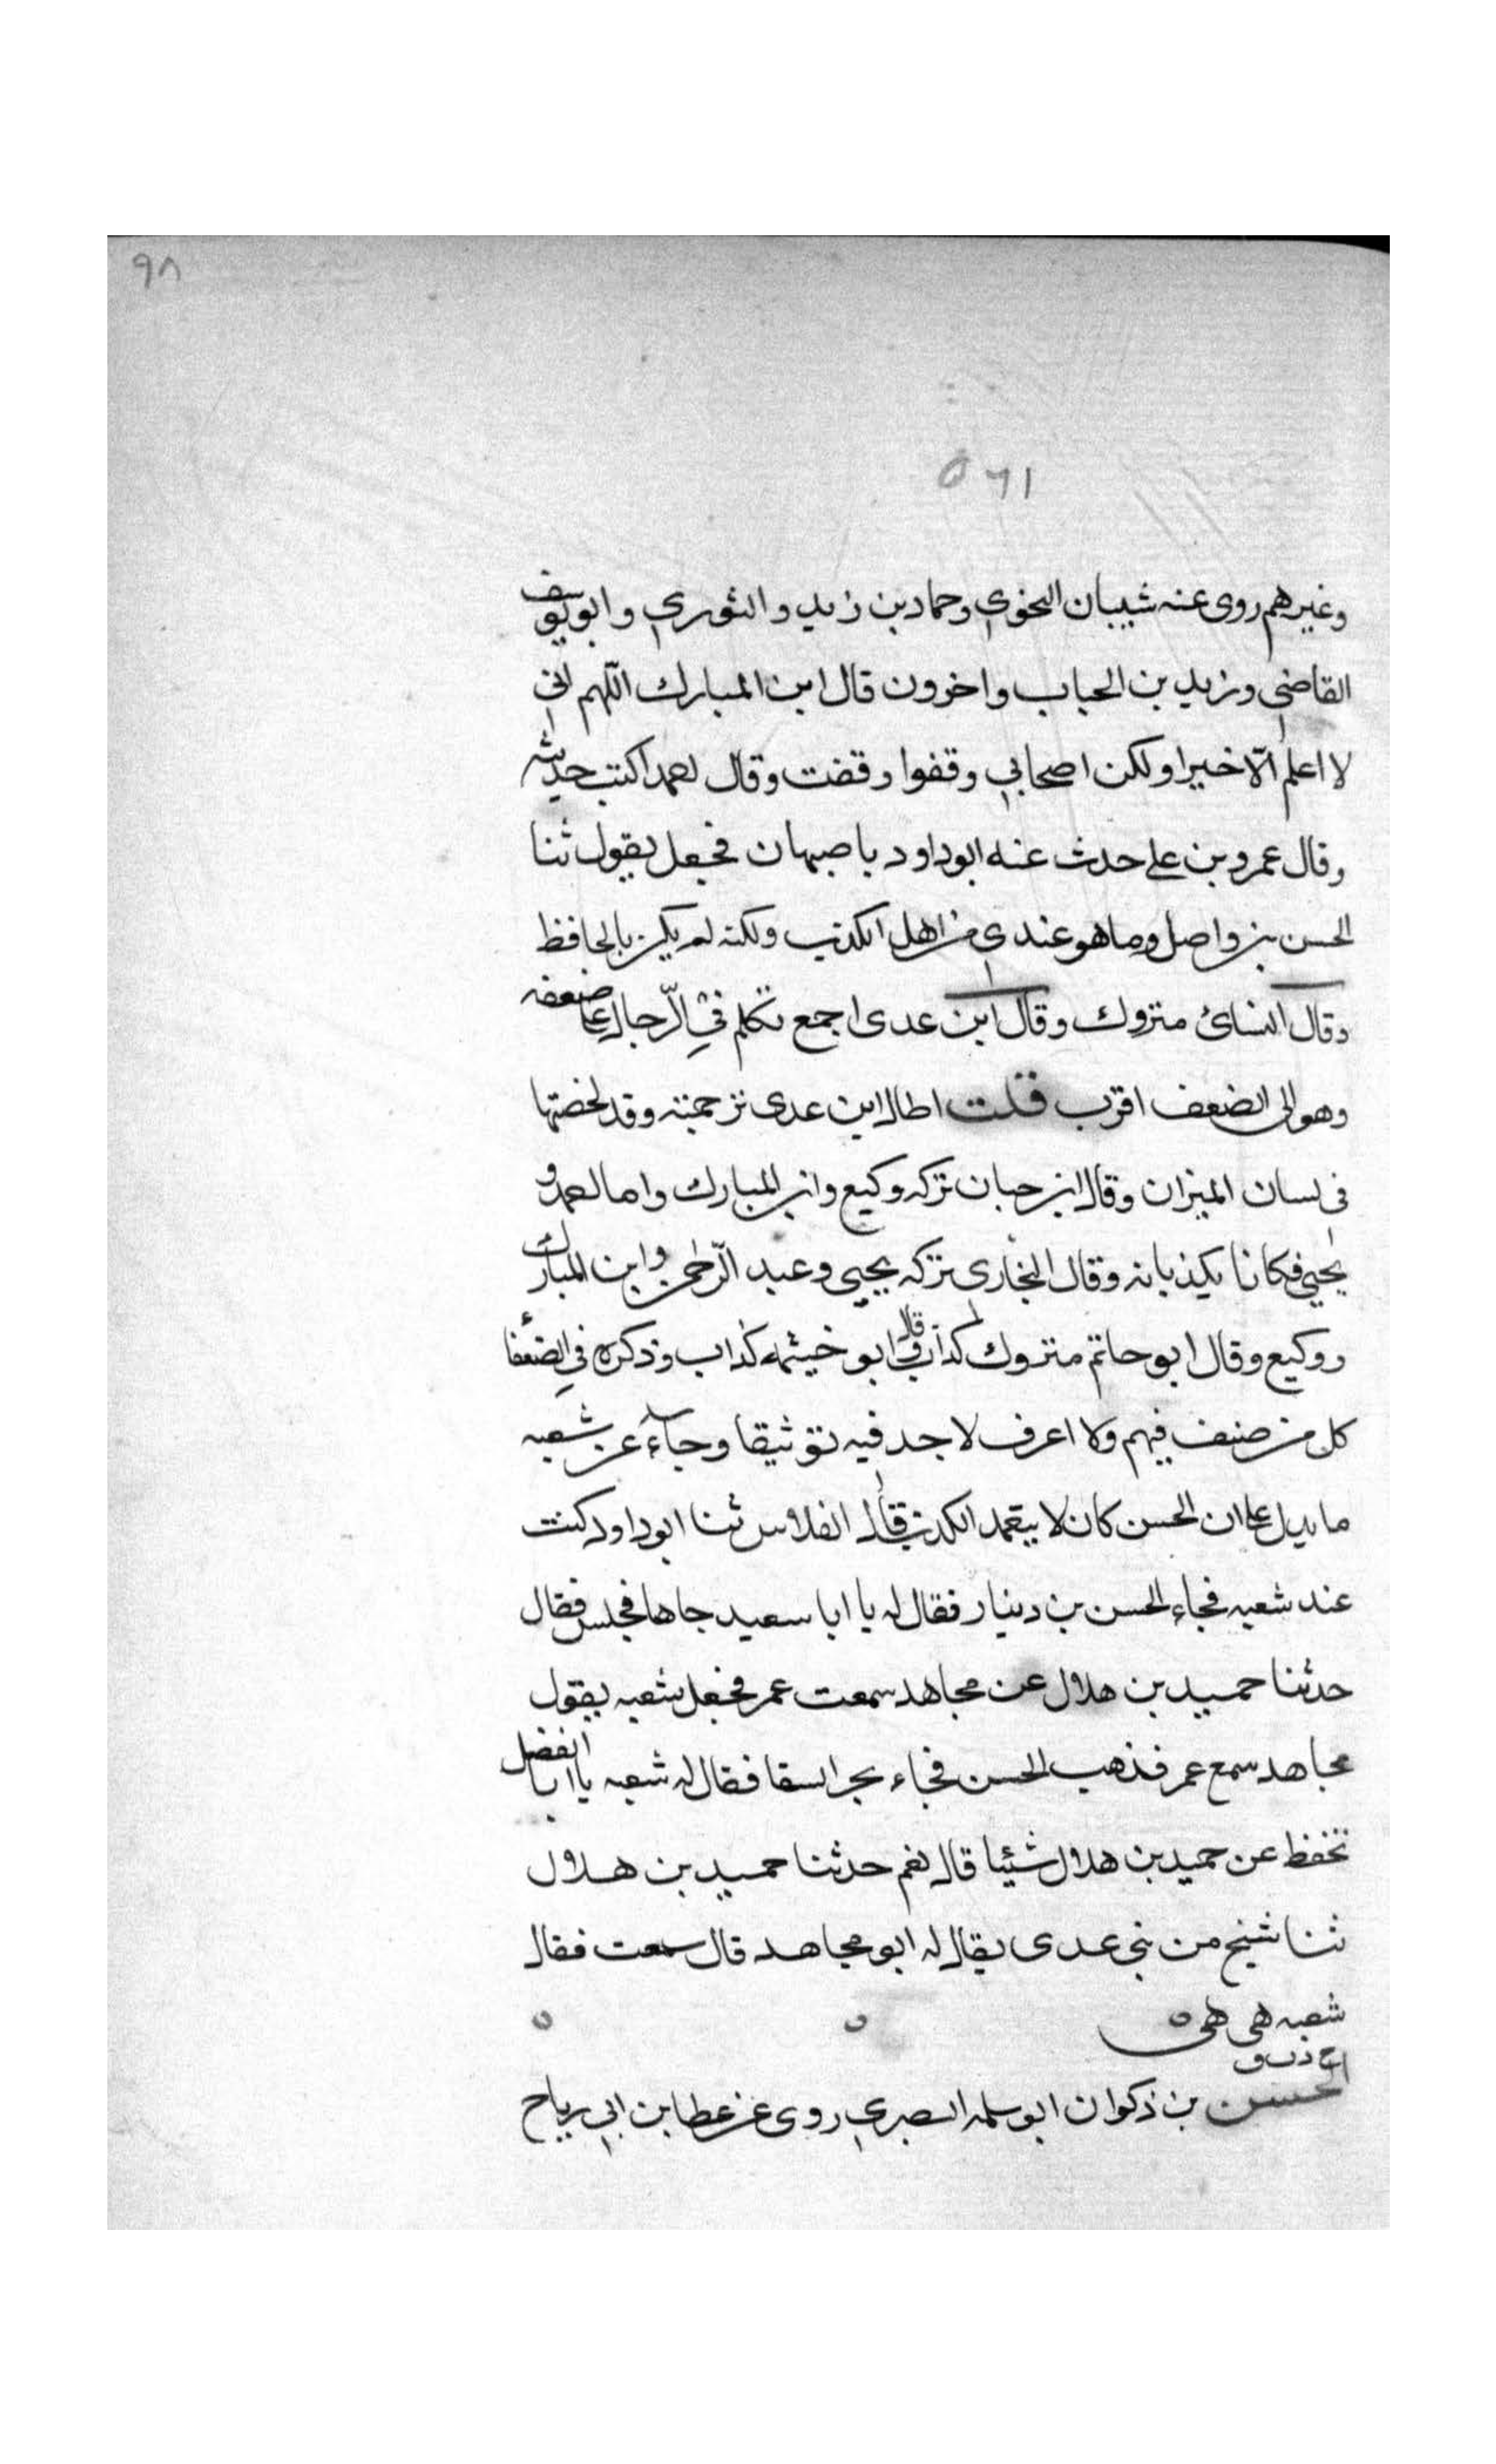 ٩٨
٥٦١
وغيرهم روى عنه شيبان النحوي وحماد بن زيد والثوري وابويوسف
القاضي وزيد بن الحباب واخرون قال ابن المبارك اللهم اني
لا اعلم الا خيرا ولكن اصحابي وقفوا وقفت وقال احمد اكتب حديثه
وقال عمرو بن علي حدث عنه ابوداود باصبهان فجعل يقول ثنا
الحسن بن واصل وما هو عندي من اهل الكذب ولكنه لم يكن بالحافظ
وقال النسائ متروك وقال ابن عدى اجمع تكلم في الرجال على ضعفه
وهو الى الضعف اقرب قلت اطال ابن عدى ترجمته وقد لخصتها
في لسان الميزان وقال ابن حبان تركه وكيع وابن المبارك واما احمد و
يحيى فكانا يكذبانه وقال البخارى تركه يحيى وعبد الرحمن وابن المبارك
ووكيع وقال ابو حاتم متروك كذاب وقال ابو خيثمه كذاب وذكره في الضعفا
كل من صنف فيهم ولا اعرف لاحد فيه توثيقا وجاء عن شعبه
ما يدل على ان الحسن كان لا يتعمد الكذب قال الفلاس ثنا ابوداود كنت
عند شعبه فجاء الحسن بن دينار فقال له يا ابا سعيد هاهنا فجلس فقال
حدثنا حميد بن هلال عن مجاهد سمعت عمر فجعل شعبه يقول
مجاهد سمع عمر فذهب الحسن فجاء بحر السقا فقال له شعبه يا ابا الفضل
تحفظ عن حميد بن هلال شيئا قال نعم حدثنا حميد بن هلال
ثنا شيخ من بني عدى يقال له ابو مجاهد قال سمعت فقال
شعبه هي هي
الحسن بن ذكوان ابو سلمه البصري روى عن عطا بن ابي رباح